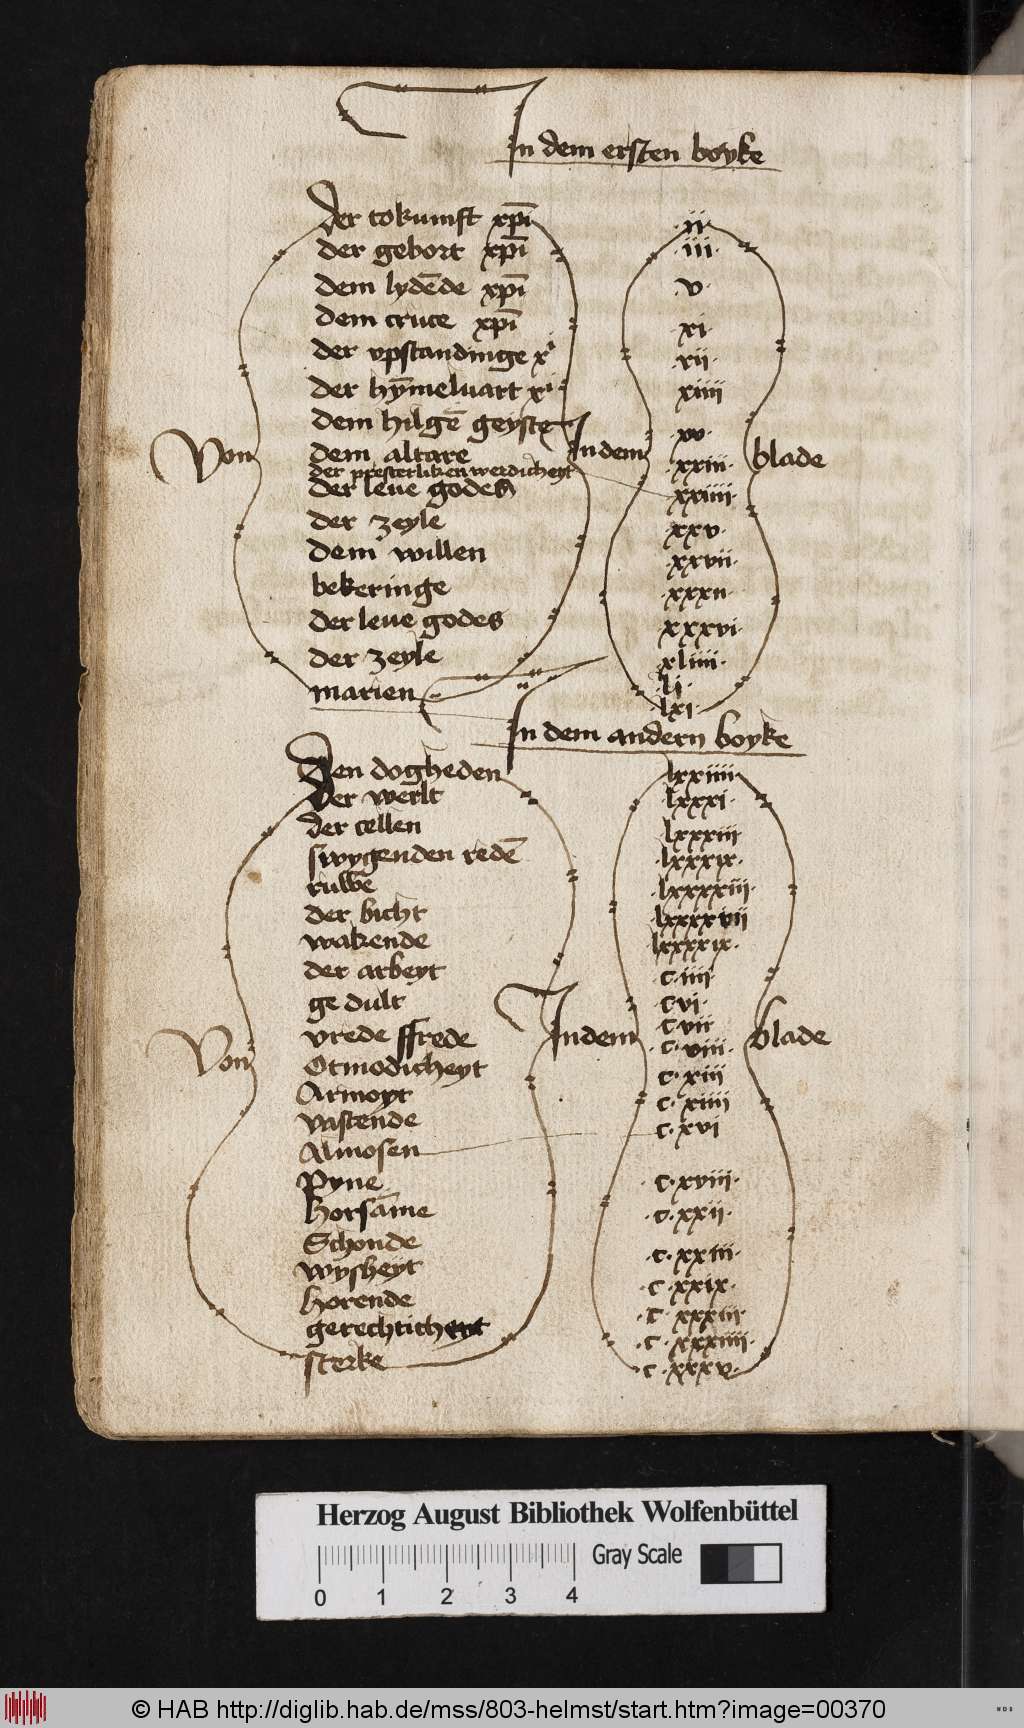 In dem ersten boyke
Der tokumft xp̄i ·ii·
der gebort xp̄i iii·
dem lydēde xp̄i ·v·
dem cruce xp̄i xi·
der vpstandinge xⁱ xii·
der hȳmeluart xⁱ xiiii
dem hilgē geyste xv·
Von dem altare In dem ·xxiii· blade
der presterliken werdicheyt xxiiii·
der leue godes xxv·
der zeyle ·xxvii·
dem willen ·xxxii·
bekeringe xxxvi·
der leue godes xliiii·
der zeyle ·li·
marien ·lxi·
In dem andern boyke
Den dogheden lxxiiii
der werlt ·lxxxi·
der cellen lxxxiii
swygenden redē ·lxxxix·
ruwē ·lxxxxiii·
der bicht lxxxxvii
wakende lxxxxix·
der arbeyt c·iiii·
ge dult cvi·
vrede ffrede cvii
Von Otmodicheyt In dem ·c·viii· blade
Armoyt c·xiii
vastende c·xiiii
Almosen c·xvi
Pyne ·c·xviii·
horsāme ·c·xxii·
Schonde ·c·xxiii·
wysheyt ·c xxix·
horende ·c xxxiii·
gerechticheyt ·c xxxiiii·
sterke ·c·xxxv·
Herzog August Bibliothek Wolfenbüttel
Gray Scale
0 1 2 3 4
© HAB http://diglib.hab.de/mss/803-helmst/start.htm?image=00370